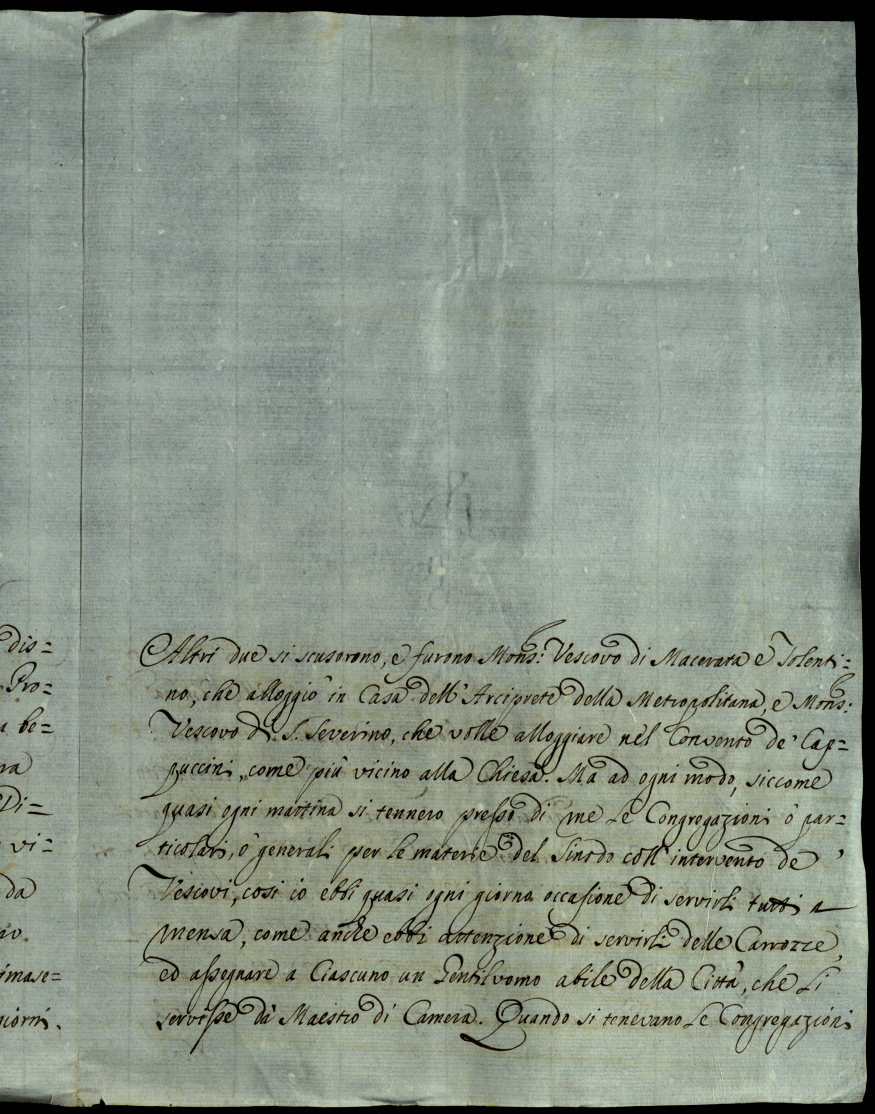 dis=
Pro=
a be=
ra
Di=
vi=
da
av.
imase=
giorni.
Altri due si scusorono, e furono Mons: Vescovo di Macerata e Tolenti=
no, che alloggiò in Casa dell' Arciprete della Metropolitana, e Mons:
Vescovo di S. Severino, che volle alloggiare nel Convento de' Cap=
puccini, come più vicino alla Chiesa. Ma ad ogni modo, siccome
quasi ogni mattina si tennero presso di me le Congregazioni ò par=
ticolari, ò generali per le materie del Sinodo coll' intervento de'
Vescovi, così io ebbi quasi ogni giorno occasione di servirli tutti a
mensa, come anche ebbi attenzione di servirli delle Carrozze,
ed assegnare a Ciascuno un Gentiluomo abile della Città, che li
servisse dà Maestro di Camera. Quando si tenevano le Congregazioni